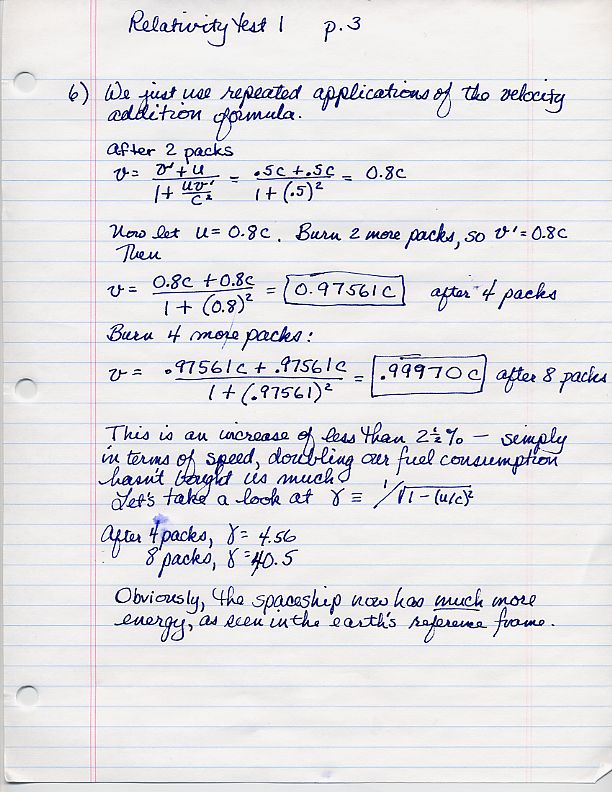 Relativity Test 1 p.3
6) We just use repeated applications of the velocity
addition formula.
After 2 packs
v = (v' + u) / (1 + uv'/c²) = (.5c + .5c) / (1 + (.5)²) = 0.8c
Now let u = 0.8c. Burn 2 more packs, so v' = 0.8c
Then
v = (0.8c + 0.8c) / (1 + (0.8)²) = 0.97561c after 4 packs
Burn 4 more packs:
v = (.97561c + .97561c) / (1 + (.97561)²) = .99970c after 8 packs
This is an increase of less than 2½% — simply
in terms of speed, doubling our fuel consumption
hasn't bought us much.
Let's take a look at γ ≡ 1/√(1-(u/c)²)
After 4 packs, γ = 4.56
8 packs, γ = 40.5
Obviously, the spaceship now has much more
energy, as seen in the earth's reference frame.